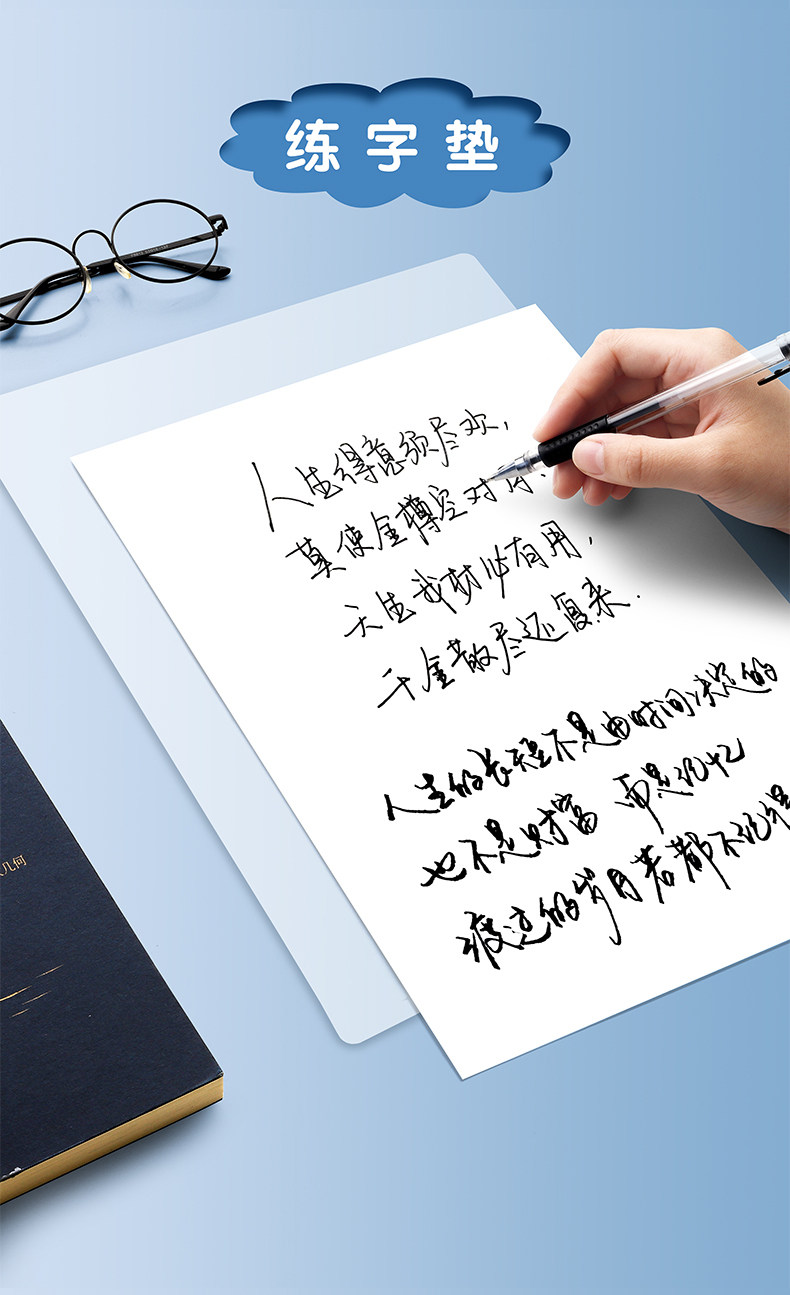 练字垫
人生得意须尽欢，
莫使金樽空对月.
天生我材必有用，
千金散尽还复来.
人生的长短不是由时间决定的
也不是财富 而是记忆
的岁月若都不记得
几何